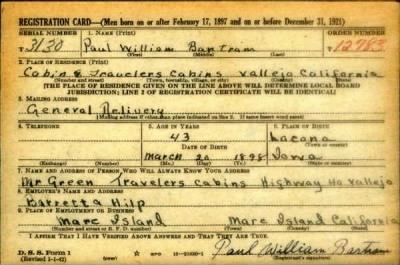 REGISTRATION CARD—(Men born on or after February 17, 1897 and on or before December 31, 1921)
SERIAL NUMBER 1. NAME (Print) ORDER NUMBER
T3130 Paul William Bartram T12983
(First) (Middle) (Last)
2. PLACE OF RESIDENCE (Print)
Cabin 8 Travelers Cabins Vallejo California
(Number and street) (Town, township, village, or city) (County) (State)
[THE PLACE OF RESIDENCE GIVEN ON THE LINE ABOVE WILL DETERMINE LOCAL BOARD
JURISDICTION; LINE 2 OF REGISTRATION CERTIFICATE WILL BE IDENTICAL]
3. MAILING ADDRESS
General Delivery
[Mailing address if other than place indicated on line 2. If same insert word same]
4. TELEPHONE 5. AGE IN YEARS 6. PLACE OF BIRTH
43 Lacona
DATE OF BIRTH (Town or county)
March 20 1898 Iowa
(Exchange) (Number) (Mo.) (Day) (Yr.) (State or country)
7. NAME AND ADDRESS OF PERSON WHO WILL ALWAYS KNOW YOUR ADDRESS
Mr Green Travelers cabins Highway 40 Vallejo
8. EMPLOYER'S NAME AND ADDRESS
Barretta Hilp
9. PLACE OF EMPLOYMENT OR BUSINESS
Mare Island Mare Island California
(Number and street or R. F. D. number) (Town) (County) (State)
I AFFIRM THAT I HAVE VERIFIED ABOVE ANSWERS AND THAT THEY ARE TRUE.
D. S. S. Form 1
(Revised 1-1-42) (over) Paul William Bartram